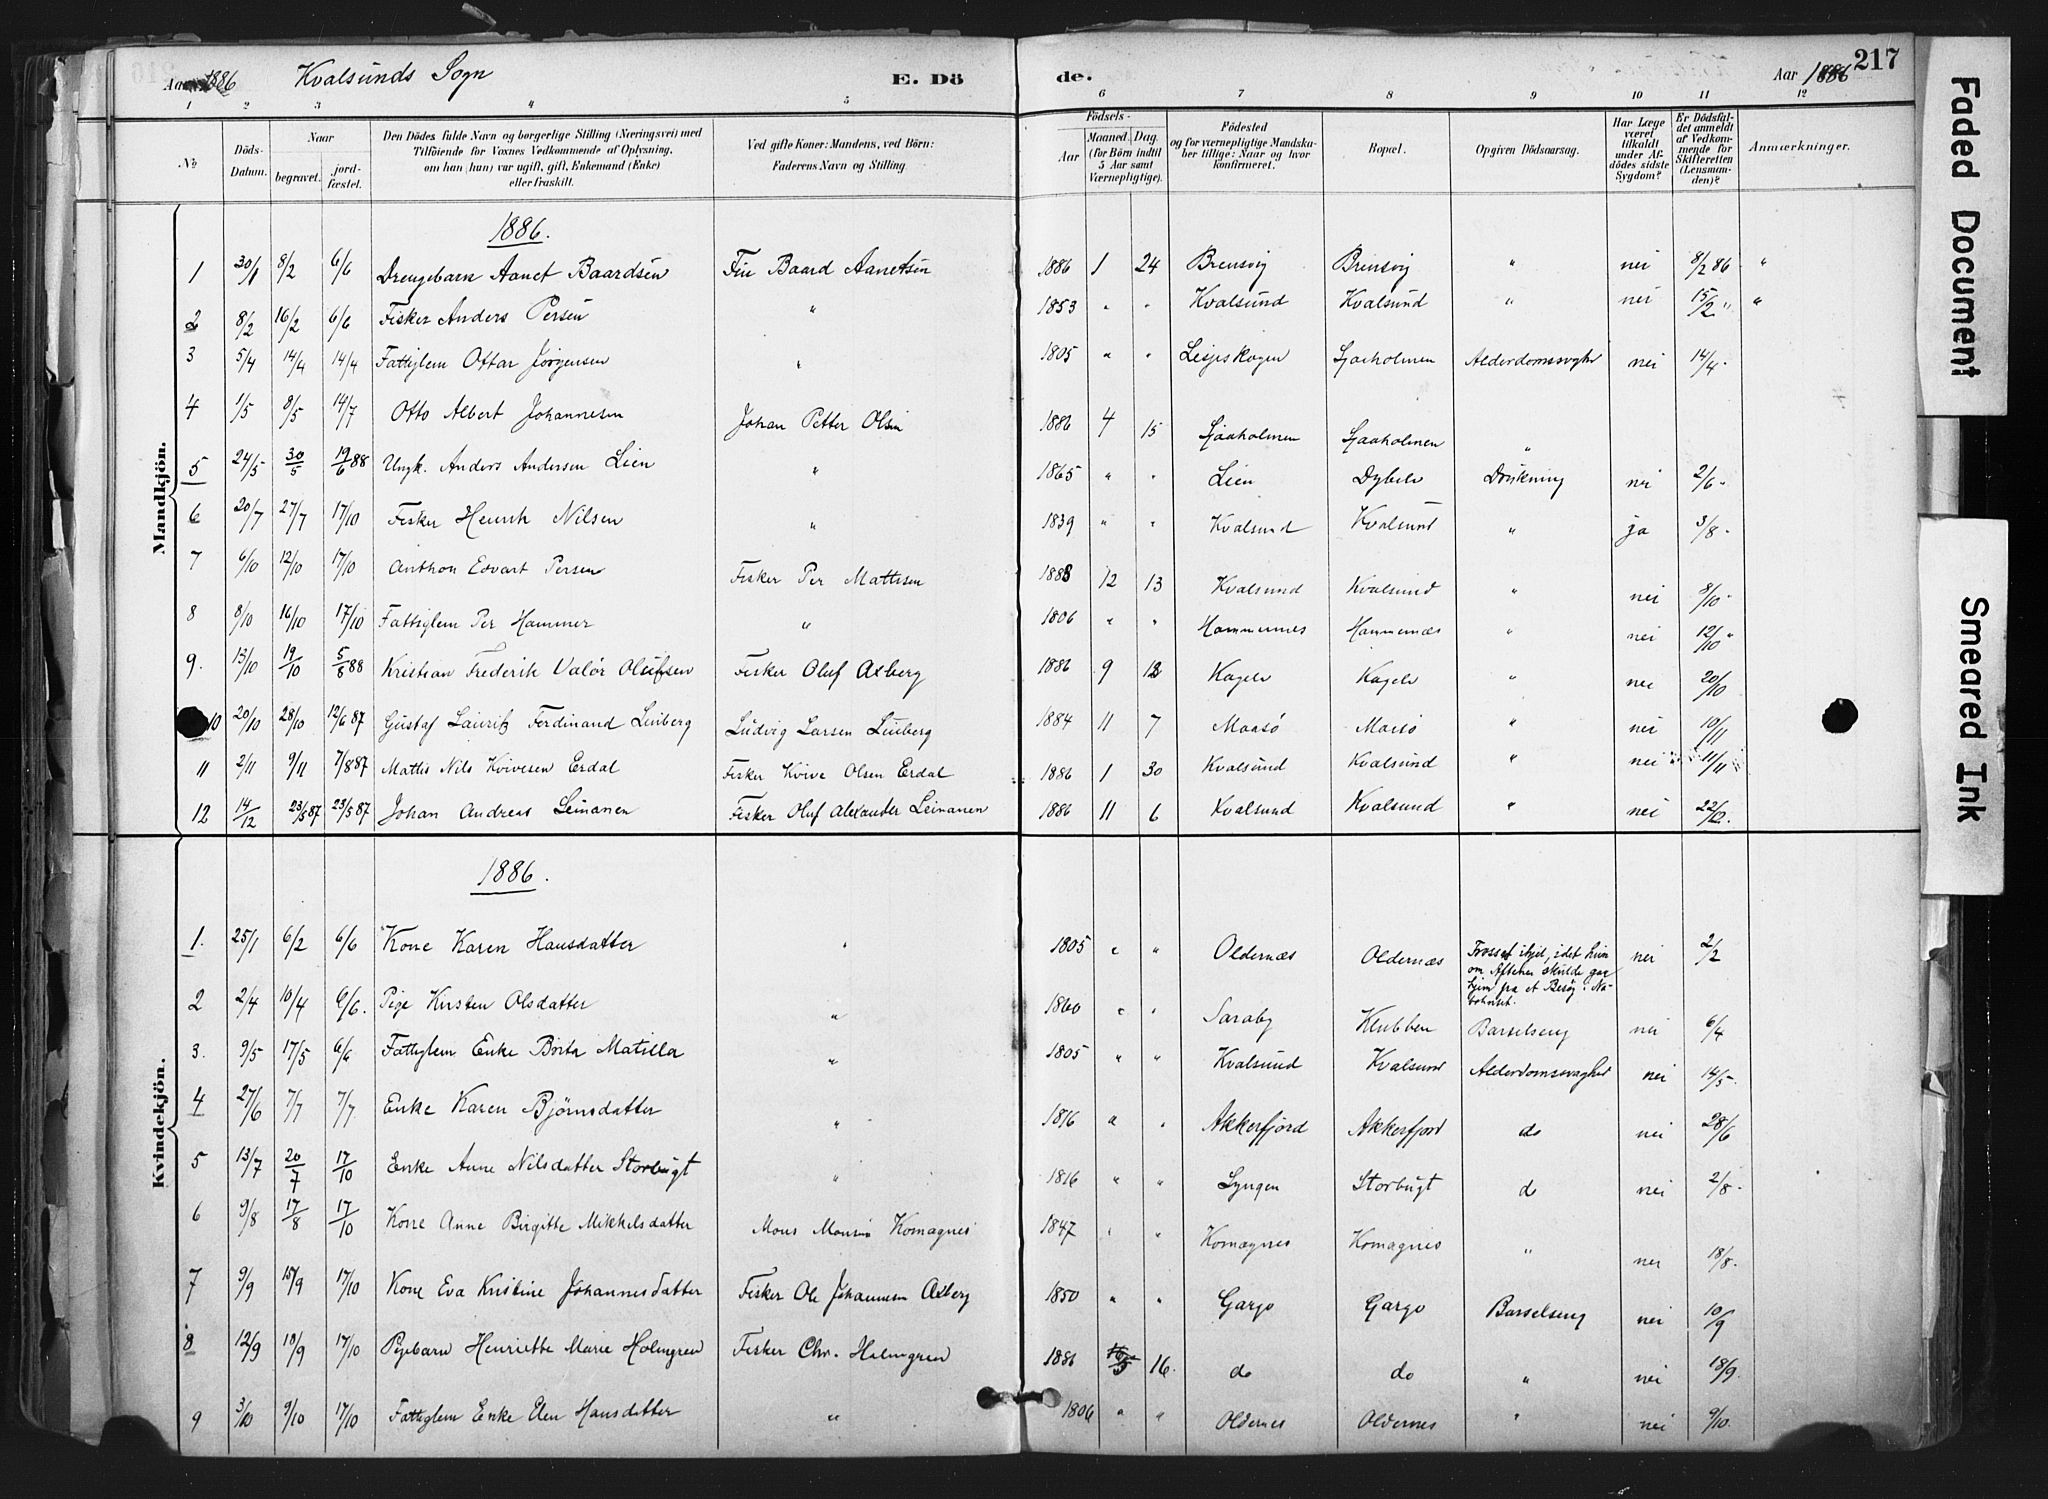 Aar 1886 Kvalsunds Sogn E. Döde. Aar 1886 217
1 2 3 4 5 6 7 8 9 10 11 12
No. Döds-Datum. Naar begravet. jordfæstet. Den Dödes fulde Navn og borgerlige Stilling (Næringsvei) med Tilföiende for Voxnes Vedkommende af Oplysning, om han (hun) var ugift, gift, Enkemand (Enke) eller fraskilt. Ved gifte Koner: Mandens, ved Börn: Faderens Navn og Stilling. Födsels- Aar Maaned. Dag. (for Börn indtil 5 Aar samt Værnepligtige). Födested og for værnepligtige Mandskaber tillige: Naar og hvor konfirmeret. Bopæl. Opgiven Dödsaarsag. Har Læge været tilkaldt under Afdödes sidste Sygdom? Er Dödsfaldet anmeldt af Vedkommende for Skifteretten (Lensmanden)? Anmærkninger.
Mandkjön.
1886.
1 30/1 8/2 6/6 Drengebarn Aanet Baardsen Baard Aanetsen 1886 1 24 Brensvig Brensvig " nei 8/2 86 "
2 8/2 16/2 6/6 Fisker Anders Persen " 1853 " " Kvalsund Kvalsund " nei 15/2 " "
3 5/4 14/4 14/4 Fattiglem Ottar Jörgensen " 1805 " " Lesjeskogen Sjaaholmen Alderdomssvaghed nei 14/4
4 1/5 8/5 14/7 Otto Albert Johannesen Johan Petter Olsen 1886 4 15 Sjaaholmen Sjaaholmen "
5 24/5 30/5 19/6 88 Ungk. Anders Andersen Lien " 1865 " " Lien Dybelv Drukning nei 2/6
6 20/7 27/7 17/10 Fisker Henrik Nilsen " 1839 " " Kvalsund Kvalsund " ja 3/8
7 6/10 12/10 17/10 Anthon Edvart Persen Fisker Per Mattisen 1883 12 13 Kvalsund Kvalsund " nei 8/10
8 8/10 16/10 17/10 Fattiglem Per Hammer " 1806 " " Hammernes Hammernæs " nei 12/10 "
9. 13/10 19/10 5/6 88 Kristian Frederik Valör Olufsen Fisker Oluf Axberg 1886 9 12 Kagelv Kagelv " nei 20/10
10 20/10 28/10 12/6 87 Gustaf Lauritz Ferdinand Linberg Ludvig Larsen Linberg 1884 11 7 Maasö Maasö " nei 10/11
11 2/11 9/11 7/8 87 Mattis Nils Kvivesen Erdal Fisker Kvive Olsen Erdal 1886 1 30 Kvalsund Kvalsund " nei 11/11
12 14/12 23/5 87 23/5 87 Johan Andreas Leinanen Fisker Oluf Alexander Leinanen 1886 11 6 Kvalsund Kvalsund " nei 22/12
Kvindekjön.
1886.
1. 25/1 6/2 6/6 Kone Karen Hansdatter " 1805 " " Oldernæs Oldernæs Frosset ihjel, idet hun om Aftenen skulde gaa hjem fra et Besög i Nabohuset. nei 2/2
2 2/4 10/4 6/6. Pige Kirsten Olsdatter " 1860 " " Saraby Klubben Barselseng nei 6/4
3. 9/5 17/5 6/6 Fattiglem Enke Börta Matilla " 1805 " " Kvalsund Kvalsund Alderdomssvaghed nei 14/5
4 27/6 7/7 7/7 Enke Karen Björnsdatter " 1816 " " Akkerfjord Akkerfjord do nei 28/6
5 13/7 20/7 17/10 Enke Anne Nilsdatter Storbugt " 1816 " " Lyngen Storbugt do nei 2/8
6 9/8 17/8 17/10 Kone Anne Birgitte Mikkelsdatter Mons Monsen Komagnes 1847 " " Komagnes Komagnes " nei 18/8
7 9/9 15/9 17/10 Kone Eva Kristine Johannesdatter Fisker Ole Johannesen Axberg 1850 " " Gargo Gargo Barselseng nei 10/9
8 12/9 18/9 17/10 Pigebarn Henriette Marie Holmgren Fisker Chr. Holmgren 1886 5 16. do do " nei 18/9
9 3/10 9/10 17/10 Fattiglem Enke Elen Hansdatter " 1806 " " Oldernes Oldernes " nei 9/10
Faded Document
Smeared Ink